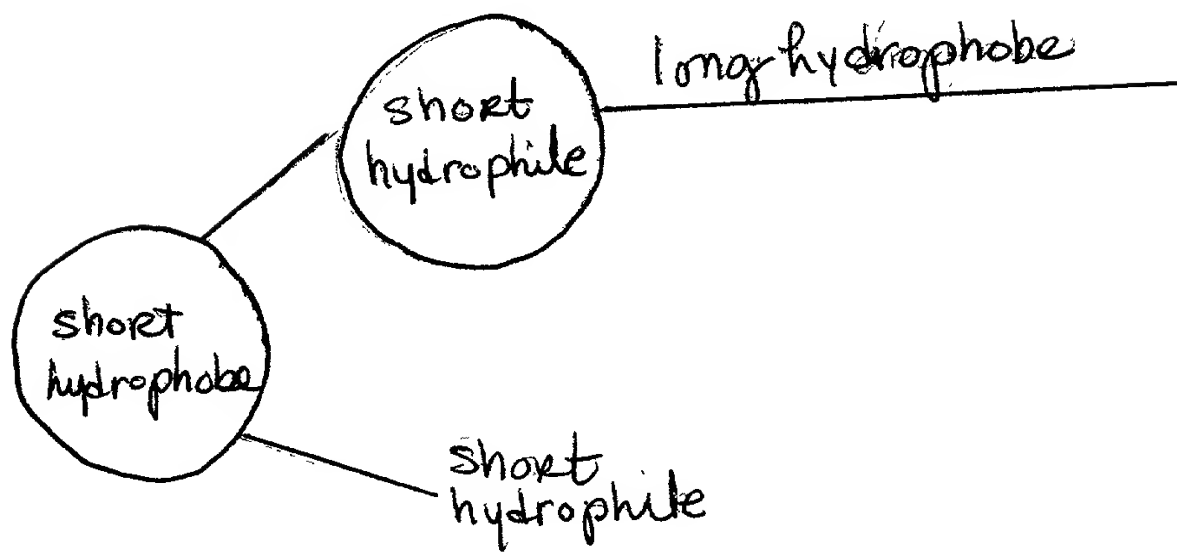 long hydrophobe
short
hydrophile
short
hydrophobe
short
hydrophile